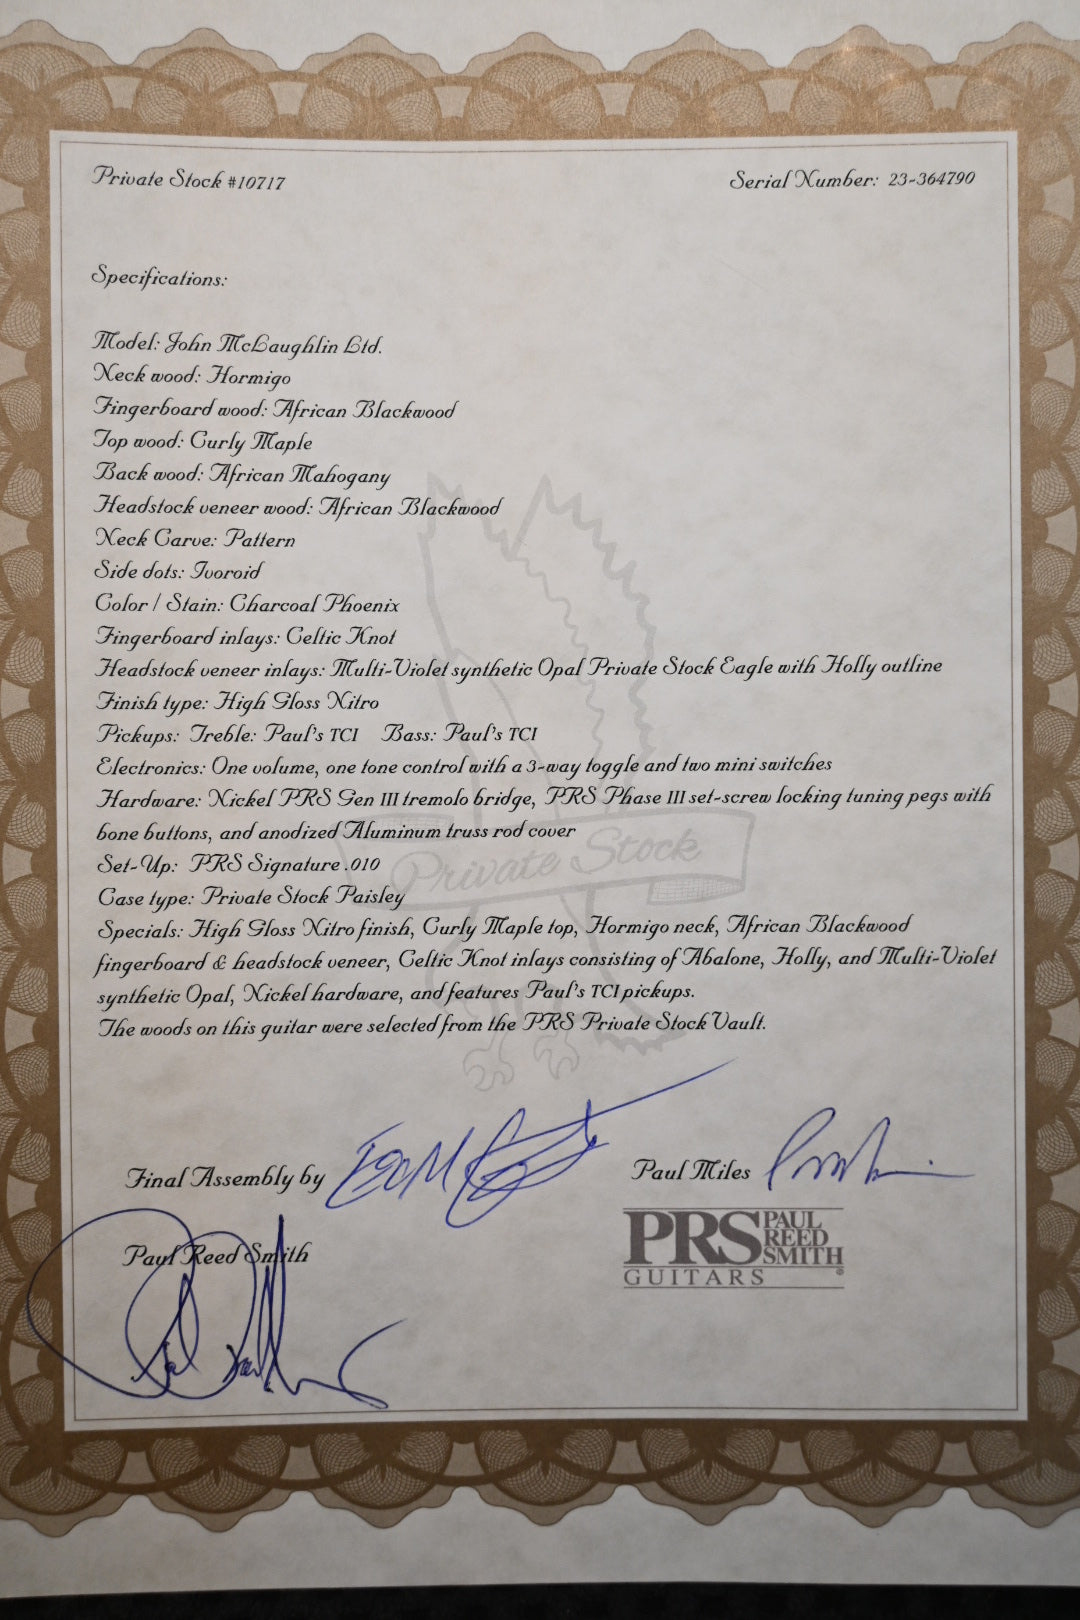 Private Stock #10717
Serial Number: 23-364790
Specifications:
Model: John McLaughlin Ltd.
Neck wood: Hormigo
Fingerboard wood: African Blackwood
Top wood: Curly Maple
Back wood: African Mahogany
Headstock veneer wood: African Blackwood
Neck Carve: Pattern
Side dots: Ivoroid
Color / Stain: Charcoal Phoenix
Fingerboard inlays: Celtic Knot
Headstock veneer inlays: Multi-Violet synthetic Opal Private Stock Eagle with Holly outline
Finish type: High Gloss Nitro
Pickups: Treble: Paul's TCI Bass: Paul's TCI
Electronics: One volume, one tone control with a 3-way toggle and two mini switches
Hardware: Nickel PRS Gen III tremolo bridge, PRS Phase III set-screw locking tuning pegs with
bone buttons, and anodized Aluminum truss rod cover
Set-Up: PRS Signature .010
Private Stock
Case type: Private Stock Paisley
Specials: High Gloss Nitro finish, Curly Maple top, Hormigo neck, African Blackwood
fingerboard & headstock veneer, Celtic Knot inlays consisting of Abalone, Holly, and Multi-Violet
synthetic Opal, Nickel hardware, and features Paul's TCI pickups.
The woods on this guitar were selected from the PRS Private Stock Vault.
Final Assembly by
Paul Miles
Paul Reed Smith
PRS PAUL REED SMITH
GUITARS